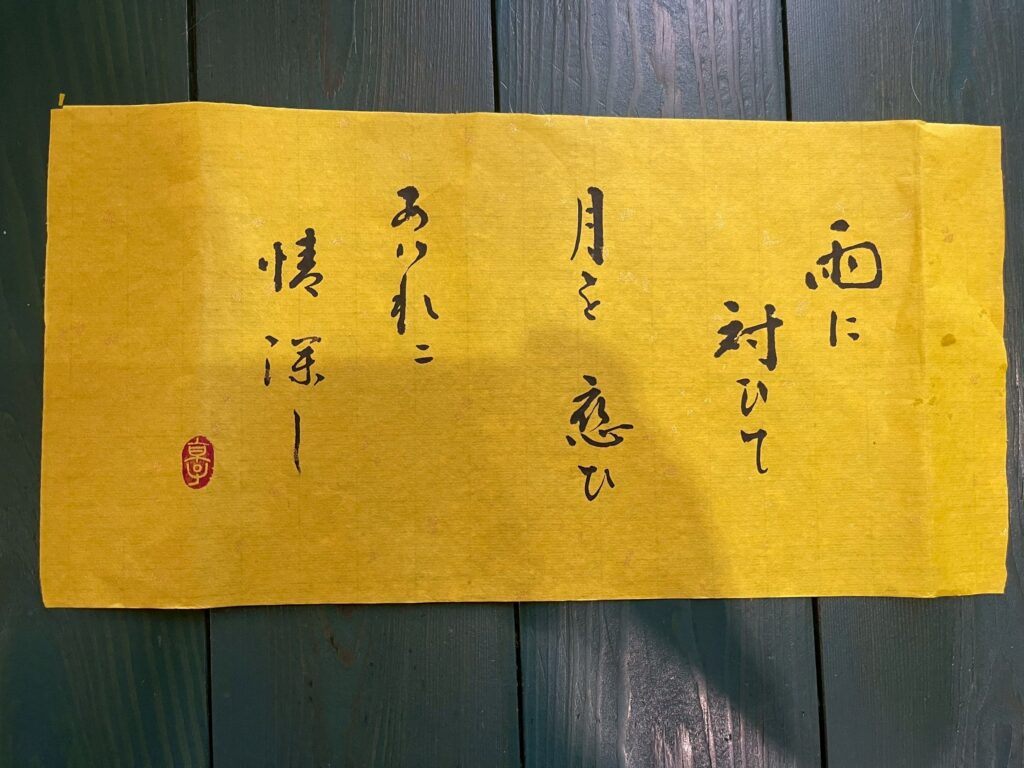 雨に
対ひて
月を恋ひ
あはれに
情深し
享